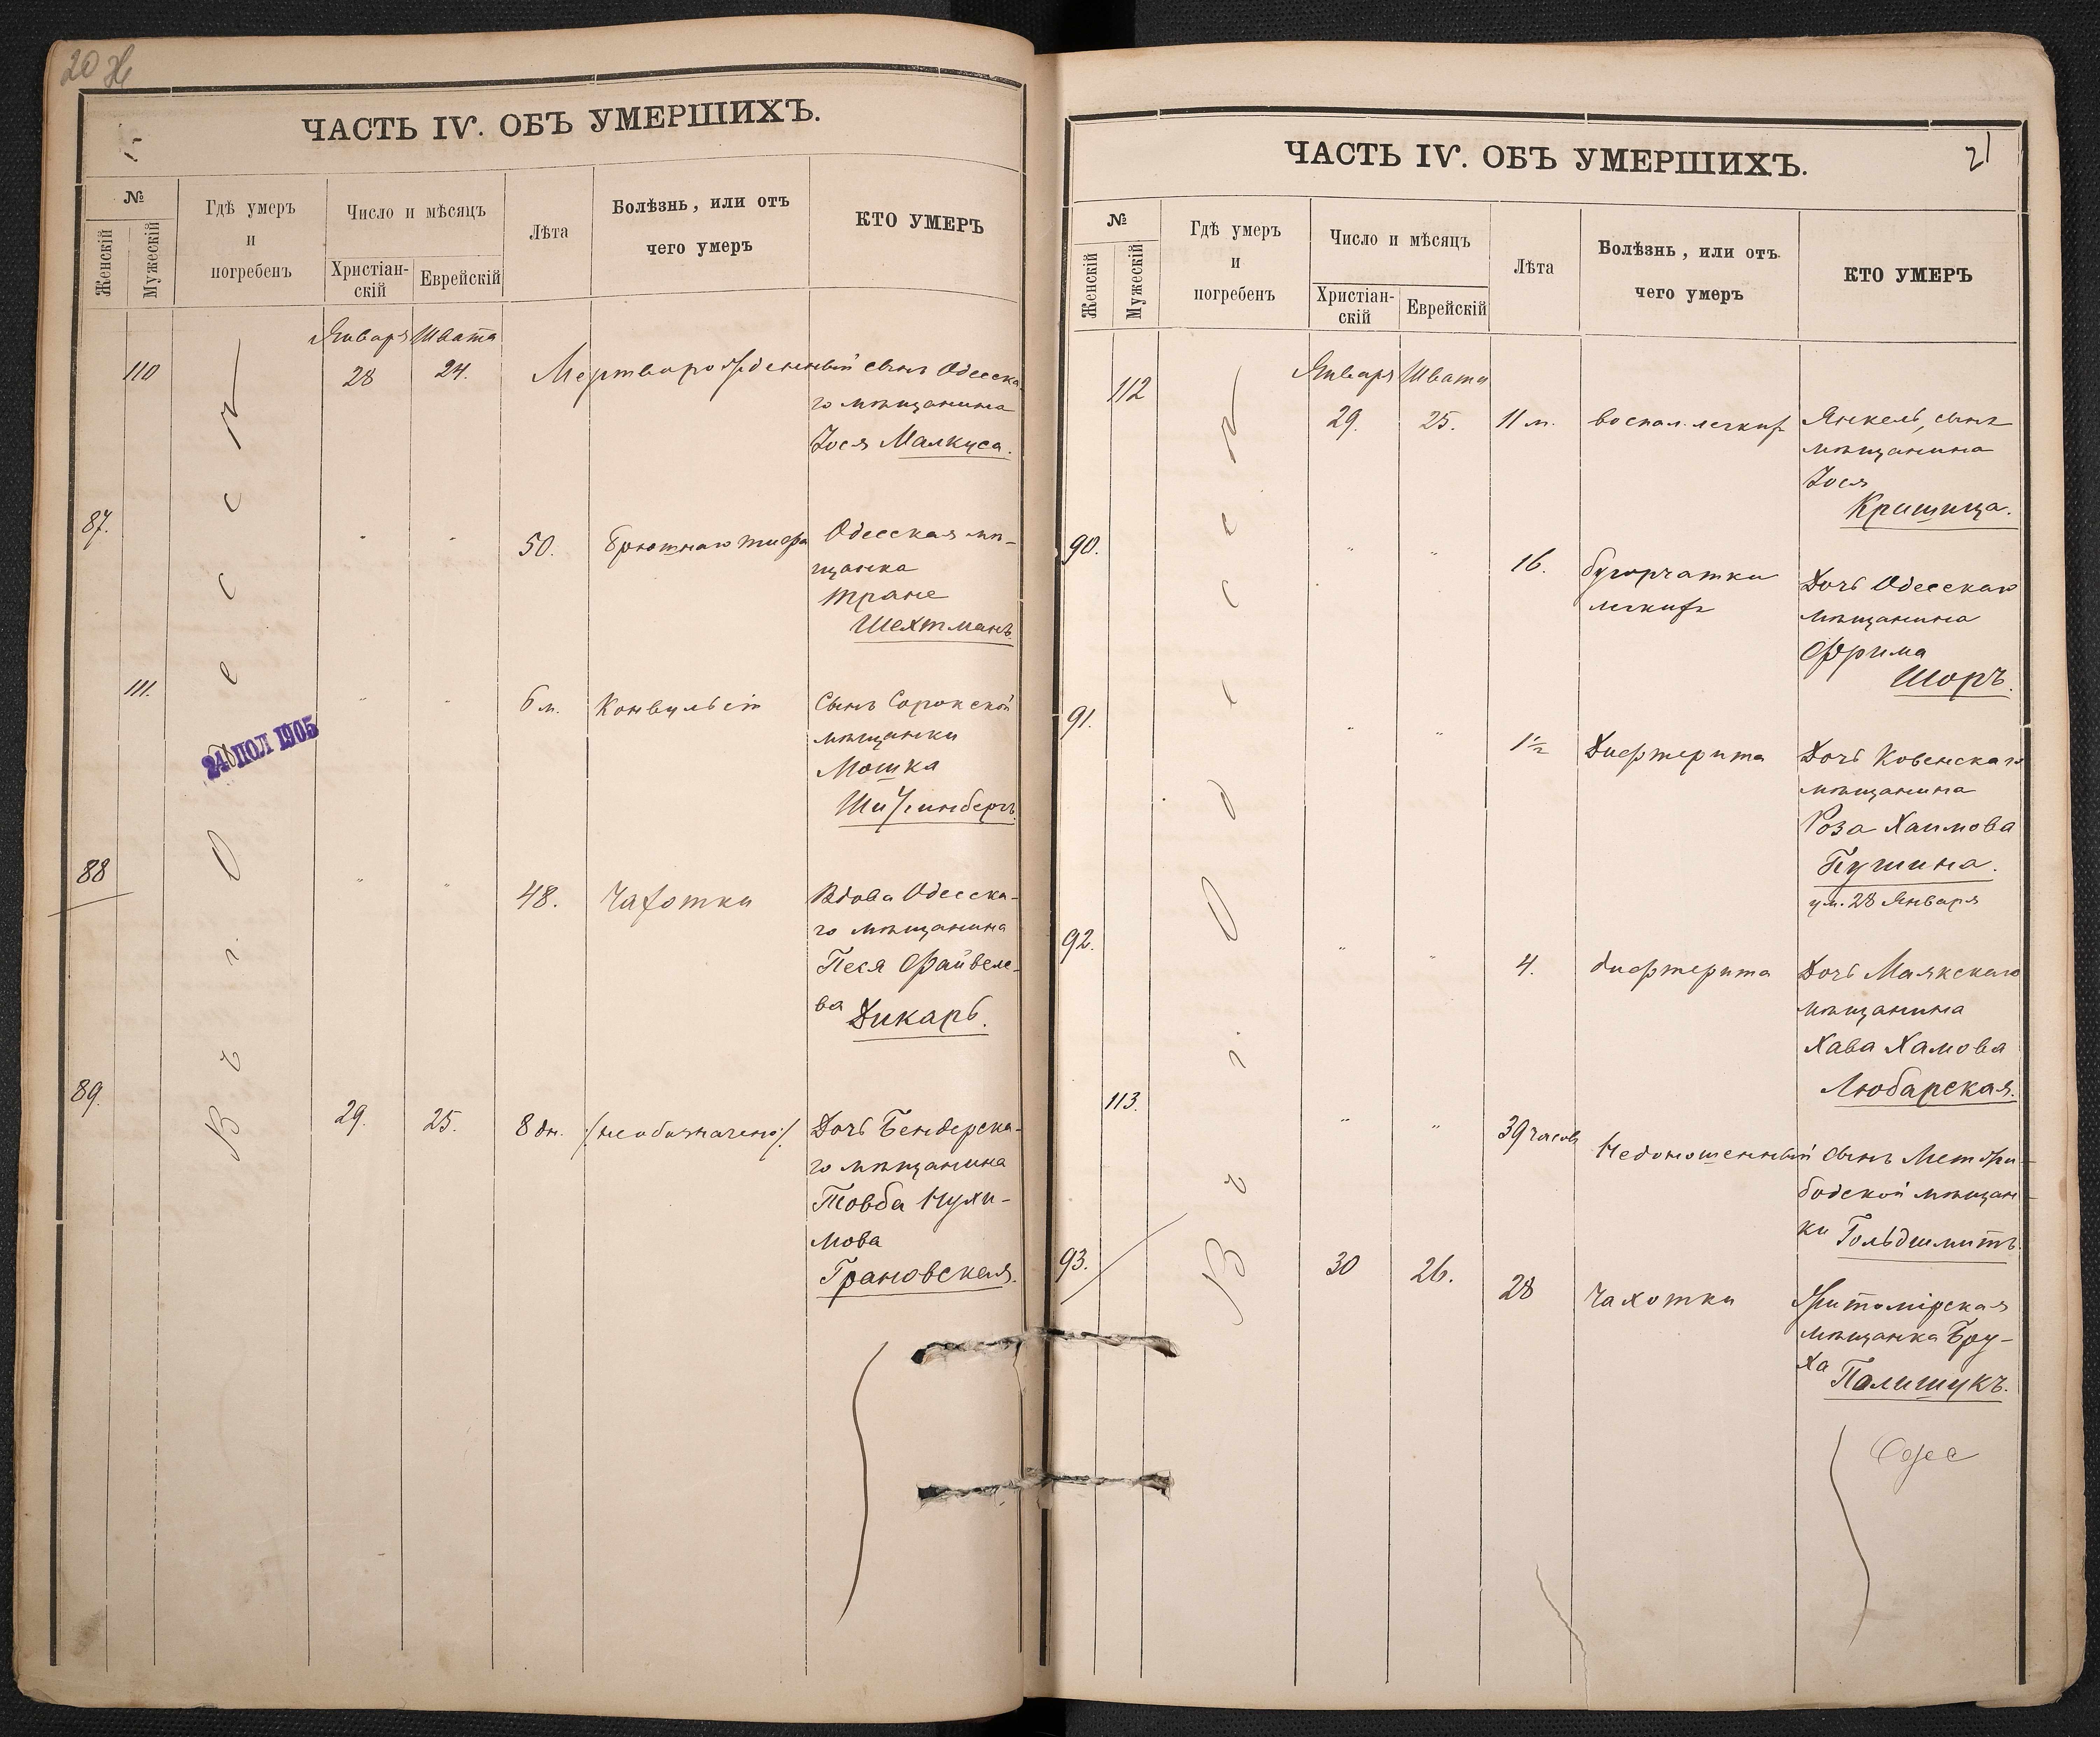 20
ЧАСТЬ IV. ОБЪ УМЕРШИХЪ.
№
Женскій
Мужескій
Гдѣ умеръ
и
погребенъ
Число и мѣсяцъ
Христіан-
скій
Еврейскій
Лѣта
Болѣзнь, или отъ
чего умеръ
КТО УМЕРЪ
Января Швата
110 28 24. Мертворожденный сынъ Одесска-
го мѣщанина
Іося Малкуса.
87. " " 50. брюшнаго тифа Одесская мѣ-
щанка
Тране
Шехтманъ.
111. " " 6 м. Конвульсіи Сынъ Сорокской
мѣщанки
Мошка
24 ІЮЛ 1905
88 " " 48. Чахотки Вдова Одесска-
го мѣщанина
Песя Файвеле-
ва Дикарь.
89. 29. 25. 8 дн. /:необозначено:/ Дочь Бендерска-
го мѣщанина
Товба Нухи-
мова
Грановская.
Въ г. Одессѣ
21
ЧАСТЬ IV. ОБЪ УМЕРШИХЪ.
№
Женскій
Мужескій
Гдѣ умеръ
и
погребенъ
Число и мѣсяцъ
Христіан-
скій
Еврейскій
Лѣта
Болѣзнь, или отъ
чего умеръ
КТО УМЕРЪ
Января Швата
112 29. 25. 11 м. воспал. легкихъ Янкель, сынъ
мѣщанина
Іося
90. " " 16. бугорчатки Дочь Одесскаго
легкихъ мѣщанина
Фрима
Шоръ.
91. " " 1½ Дифтерита Дочь Ковенскаго
мѣщанина
Роза Хаимова
Пушина.
ум. 28 Января
92. " " 4. дифтерита Дочь Маякскаго
мѣщанина
Хава Хамова
Любарская.
113. " " 39 часовъ Недоношенный сынъ Межи-
бодской мѣщан-
ки Гольдшмитъ.
93. 30 26. 28 Чахотки Житомірская
мѣщанка Бру-
ха Полишукъ.
Въ г. Одессѣ